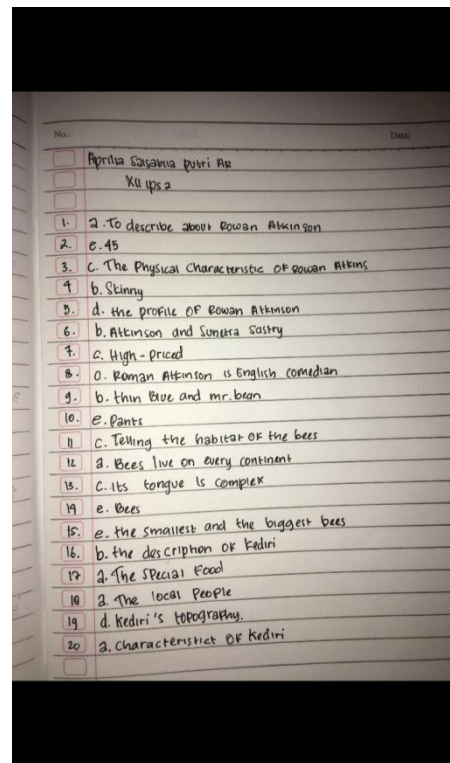 No.: Date:
Aprilia Salsabila Putri AR
XII ips 2
1. a. To describe about Rowan Atkinson
2. e. 45
3. c. The Physical Characteristic OF Rowan Atkins
4 b. Skinny
5. d. the profile OF Rowan Atkinson
6. b. Atkinson and Sunetra Sastry
7. c. High-priced
8. a. Roman Atkinson is English comedian
9. b. thin Blue and mr. bean
10. e. Pants
11 c. Telling the habitat OF the bees
12 a. Bees live on every continent
13. c. its tongue is complex
14 e. Bees
15. e. the smallest and the biggest bees
16. b. the description OF Kediri
17 a. The Special Food
18 a. The local People
19 d. Kediri's topography.
20 a. characteristict OF Kediri